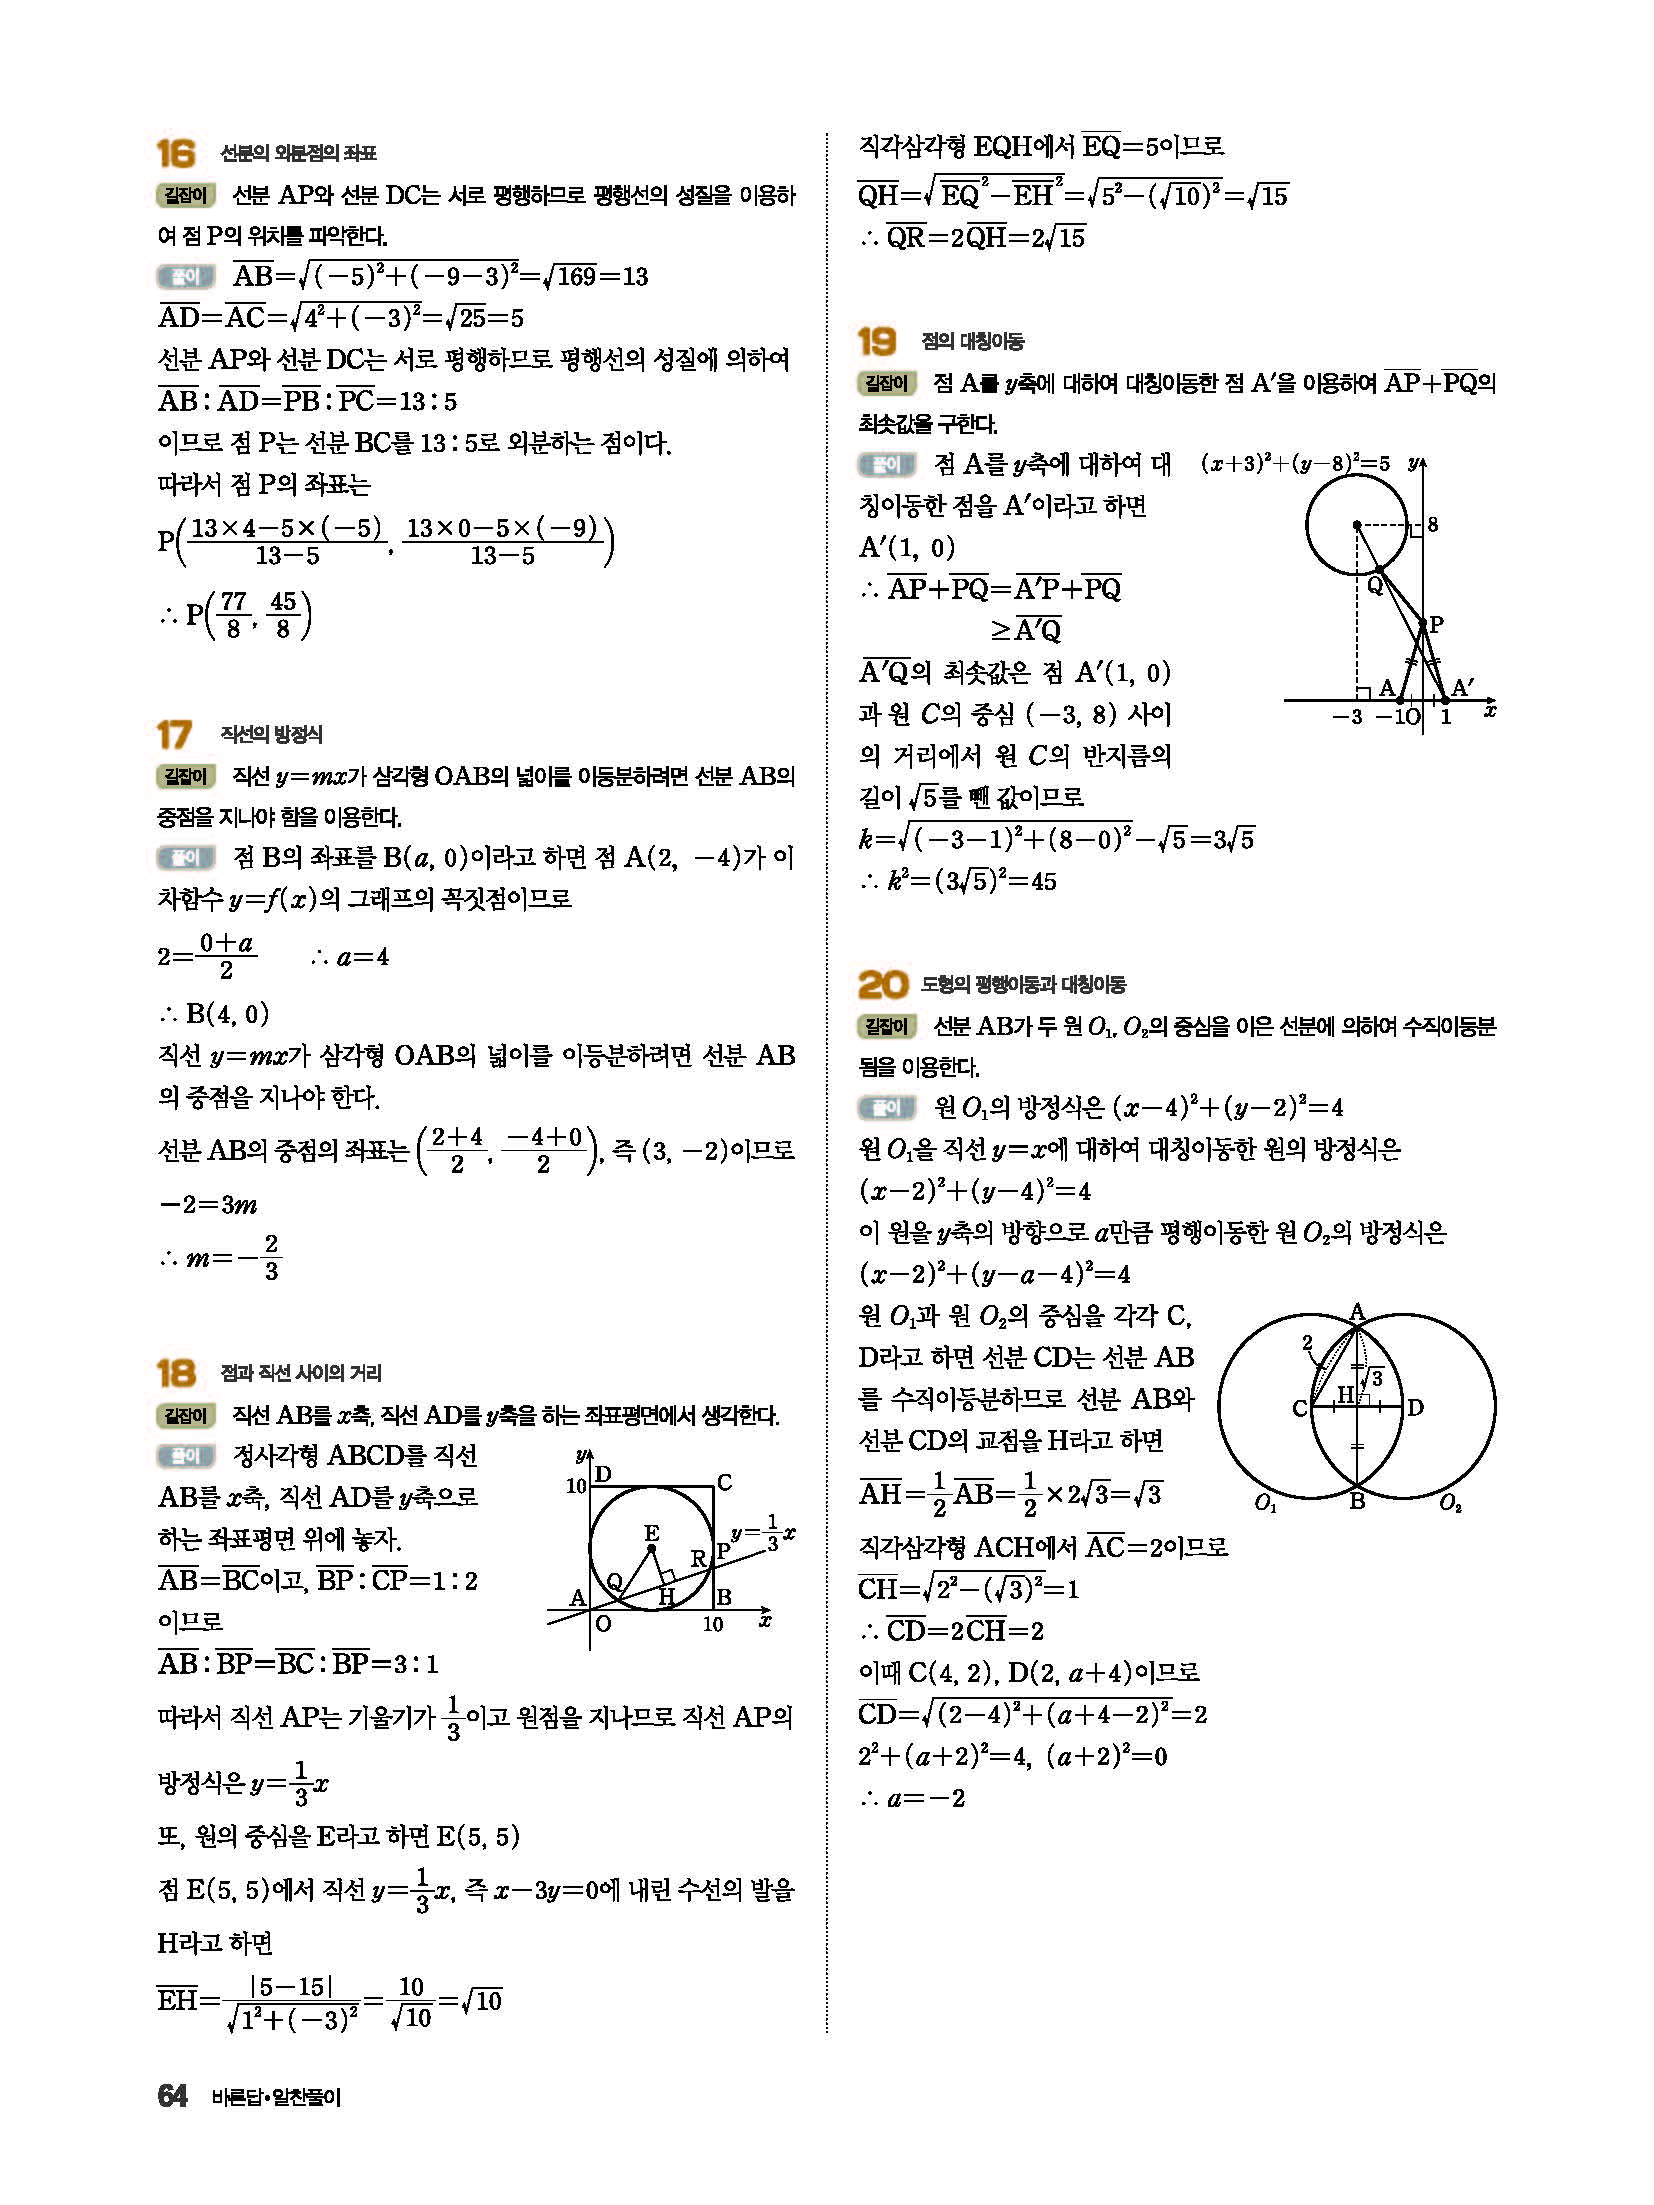 16 선분의 외분점의 좌표
길잡이 선분 AP와 선분 DC는 서로 평행하므로 평행선의 성질을 이용하
여 점 P의 위치를 파악한다.
풀이 $\overline{AB}=\sqrt{(-5)^2+(-9-3)^2}=\sqrt{169}=13$
$\overline{AD}=\overline{AC}=\sqrt{4^2+(-3)^2}=\sqrt{25}=5$
선분 AP와 선분 DC는 서로 평행하므로 평행선의 성질에 의하여
$\overline{AB}:\overline{AD}=\overline{PB}:\overline{PC}=13:5$
이므로 점 P는 선분 BC를 13:5로 외분하는 점이다.
따라서 점 P의 좌표는
$P\left(\frac{13\times4-5\times(-5)}{13-5}, \frac{13\times0-5\times(-9)}{13-5}\right)$
$\therefore P\left(\frac{77}{8}, \frac{45}{8}\right)$
17 직선의 방정식
길잡이 직선 y=mx가 삼각형 OAB의 넓이를 이등분하려면 선분 AB의
중점을 지나야 함을 이용한다.
풀이 점 B의 좌표를 B(a, 0)이라고 하면 점 A(2, -4)가 이
차함수 y=f(x)의 그래프의 꼭짓점이므로
$2=\frac{0+a}{2}$ ∴ a=4
∴ B(4, 0)
직선 y=mx가 삼각형 OAB의 넓이를 이등분하려면 선분 AB
의 중점을 지나야 한다.
선분 AB의 중점의 좌표는 $\left(\frac{2+4}{2}, \frac{-4+0}{2}\right)$, 즉 (3, -2)이므로
-2=3m
$\therefore m=-\frac{2}{3}$
18 점과 직선 사이의 거리
길잡이 직선 AB를 x축, 직선 AD를 y축을 하는 좌표평면에서 생각한다.
풀이 정사각형 ABCD를 직선
AB를 x축, 직선 AD를 y축으로
하는 좌표평면 위에 놓자.
$\overline{AB}=\overline{BC}$이고, $\overline{BP}:\overline{CP}=1:2$
이므로
$\overline{AB}:\overline{BP}=\overline{BC}:\overline{BP}=3:1$
y
10 D C
E
$y=\frac{1}{3}x$
R P
Q
H
A B
O 10 x
따라서 직선 AP는 기울기가 $\frac{1}{3}$이고 원점을 지나므로 직선 AP의
방정식은 $y=\frac{1}{3}x$
또, 원의 중심을 E라고 하면 E(5, 5)
점 E(5, 5)에서 직선 $y=\frac{1}{3}x$, 즉 x-3y=0에 내린 수선의 발을
H라고 하면
$\overline{EH}=\frac{|5-15|}{\sqrt{1^2+(-3)^2}}=\frac{10}{\sqrt{10}}=\sqrt{10}$
직각삼각형 EQH에서 $\overline{EQ}=5$이므로
$\overline{QH}=\sqrt{\overline{EQ}^2-\overline{EH}^2}=\sqrt{5^2-(\sqrt{10})^2}=\sqrt{15}$
$\therefore \overline{QR}=2\overline{QH}=2\sqrt{15}$
19 점의 대칭이동
길잡이 점 A를 y축에 대하여 대칭이동한 점 A′을 이용하여 $\overline{AP}+\overline{PQ}$의
최솟값을 구한다.
풀이 점 A를 y축에 대하여 대
칭이동한 점을 A′이라고 하면
A′(1, 0)
$\therefore \overline{AP}+\overline{PQ}=\overline{A'P}+\overline{PQ}$
$\geq\overline{A'Q}$
$\overline{A'Q}$의 최솟값은 점 A′(1, 0)
과 원 C의 중심 (-3, 8) 사이
의 거리에서 원 C의 반지름의
길이 $\sqrt{5}$를 뺀 값이므로
$(x+3)^2+(y-8)^2=5$ y
8
Q
P
A A′
-3 -1 O 1 x
$k=\sqrt{(-3-1)^2+(8-0)^2}-\sqrt{5}=3\sqrt{5}$
$\therefore k^2=(3\sqrt{5})^2=45$
20 도형의 평행이동과 대칭이동
길잡이 선분 AB가 두 원 $O_1$, $O_2$의 중심을 이은 선분에 의하여 수직이등분
됨을 이용한다.
풀이 원 $O_1$의 방정식은 $(x-4)^2+(y-2)^2=4$
원 $O_1$을 직선 y=x에 대하여 대칭이동한 원의 방정식은
$(x-2)^2+(y-4)^2=4$
이 원을 y축의 방향으로 a만큼 평행이동한 원 $O_2$의 방정식은
$(x-2)^2+(y-a-4)^2=4$
원 $O_1$과 원 $O_2$의 중심을 각각 C,
D라고 하면 선분 CD는 선분 AB
를 수직이등분하므로 선분 AB와
선분 CD의 교점을 H라고 하면
A
2
$\sqrt{3}$
H
C D
$O_1$ B $O_2$
$\overline{AH}=\frac{1}{2}\overline{AB}=\frac{1}{2}\times2\sqrt{3}=\sqrt{3}$
직각삼각형 ACH에서 $\overline{AC}=2$이므로
$\overline{CH}=\sqrt{2^2-(\sqrt{3})^2}=1$
$\therefore \overline{CD}=2\overline{CH}=2$
이때 C(4, 2), D(2, a+4)이므로
$\overline{CD}=\sqrt{(2-4)^2+(a+4-2)^2}=2$
$2^2+(a+2)^2=4$, $(a+2)^2=0$
∴ a=-2
64 바른답•알찬풀이